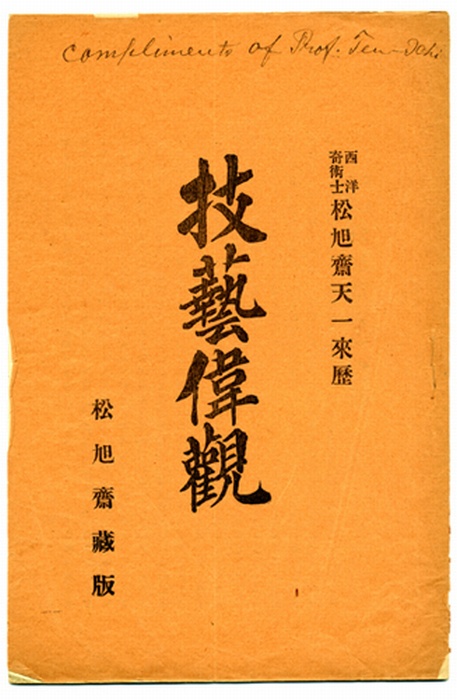 Compliments of Prof. Ten-Ichi
西洋
奇術士
松旭齋天一來歷
技藝偉觀
松旭齋藏版